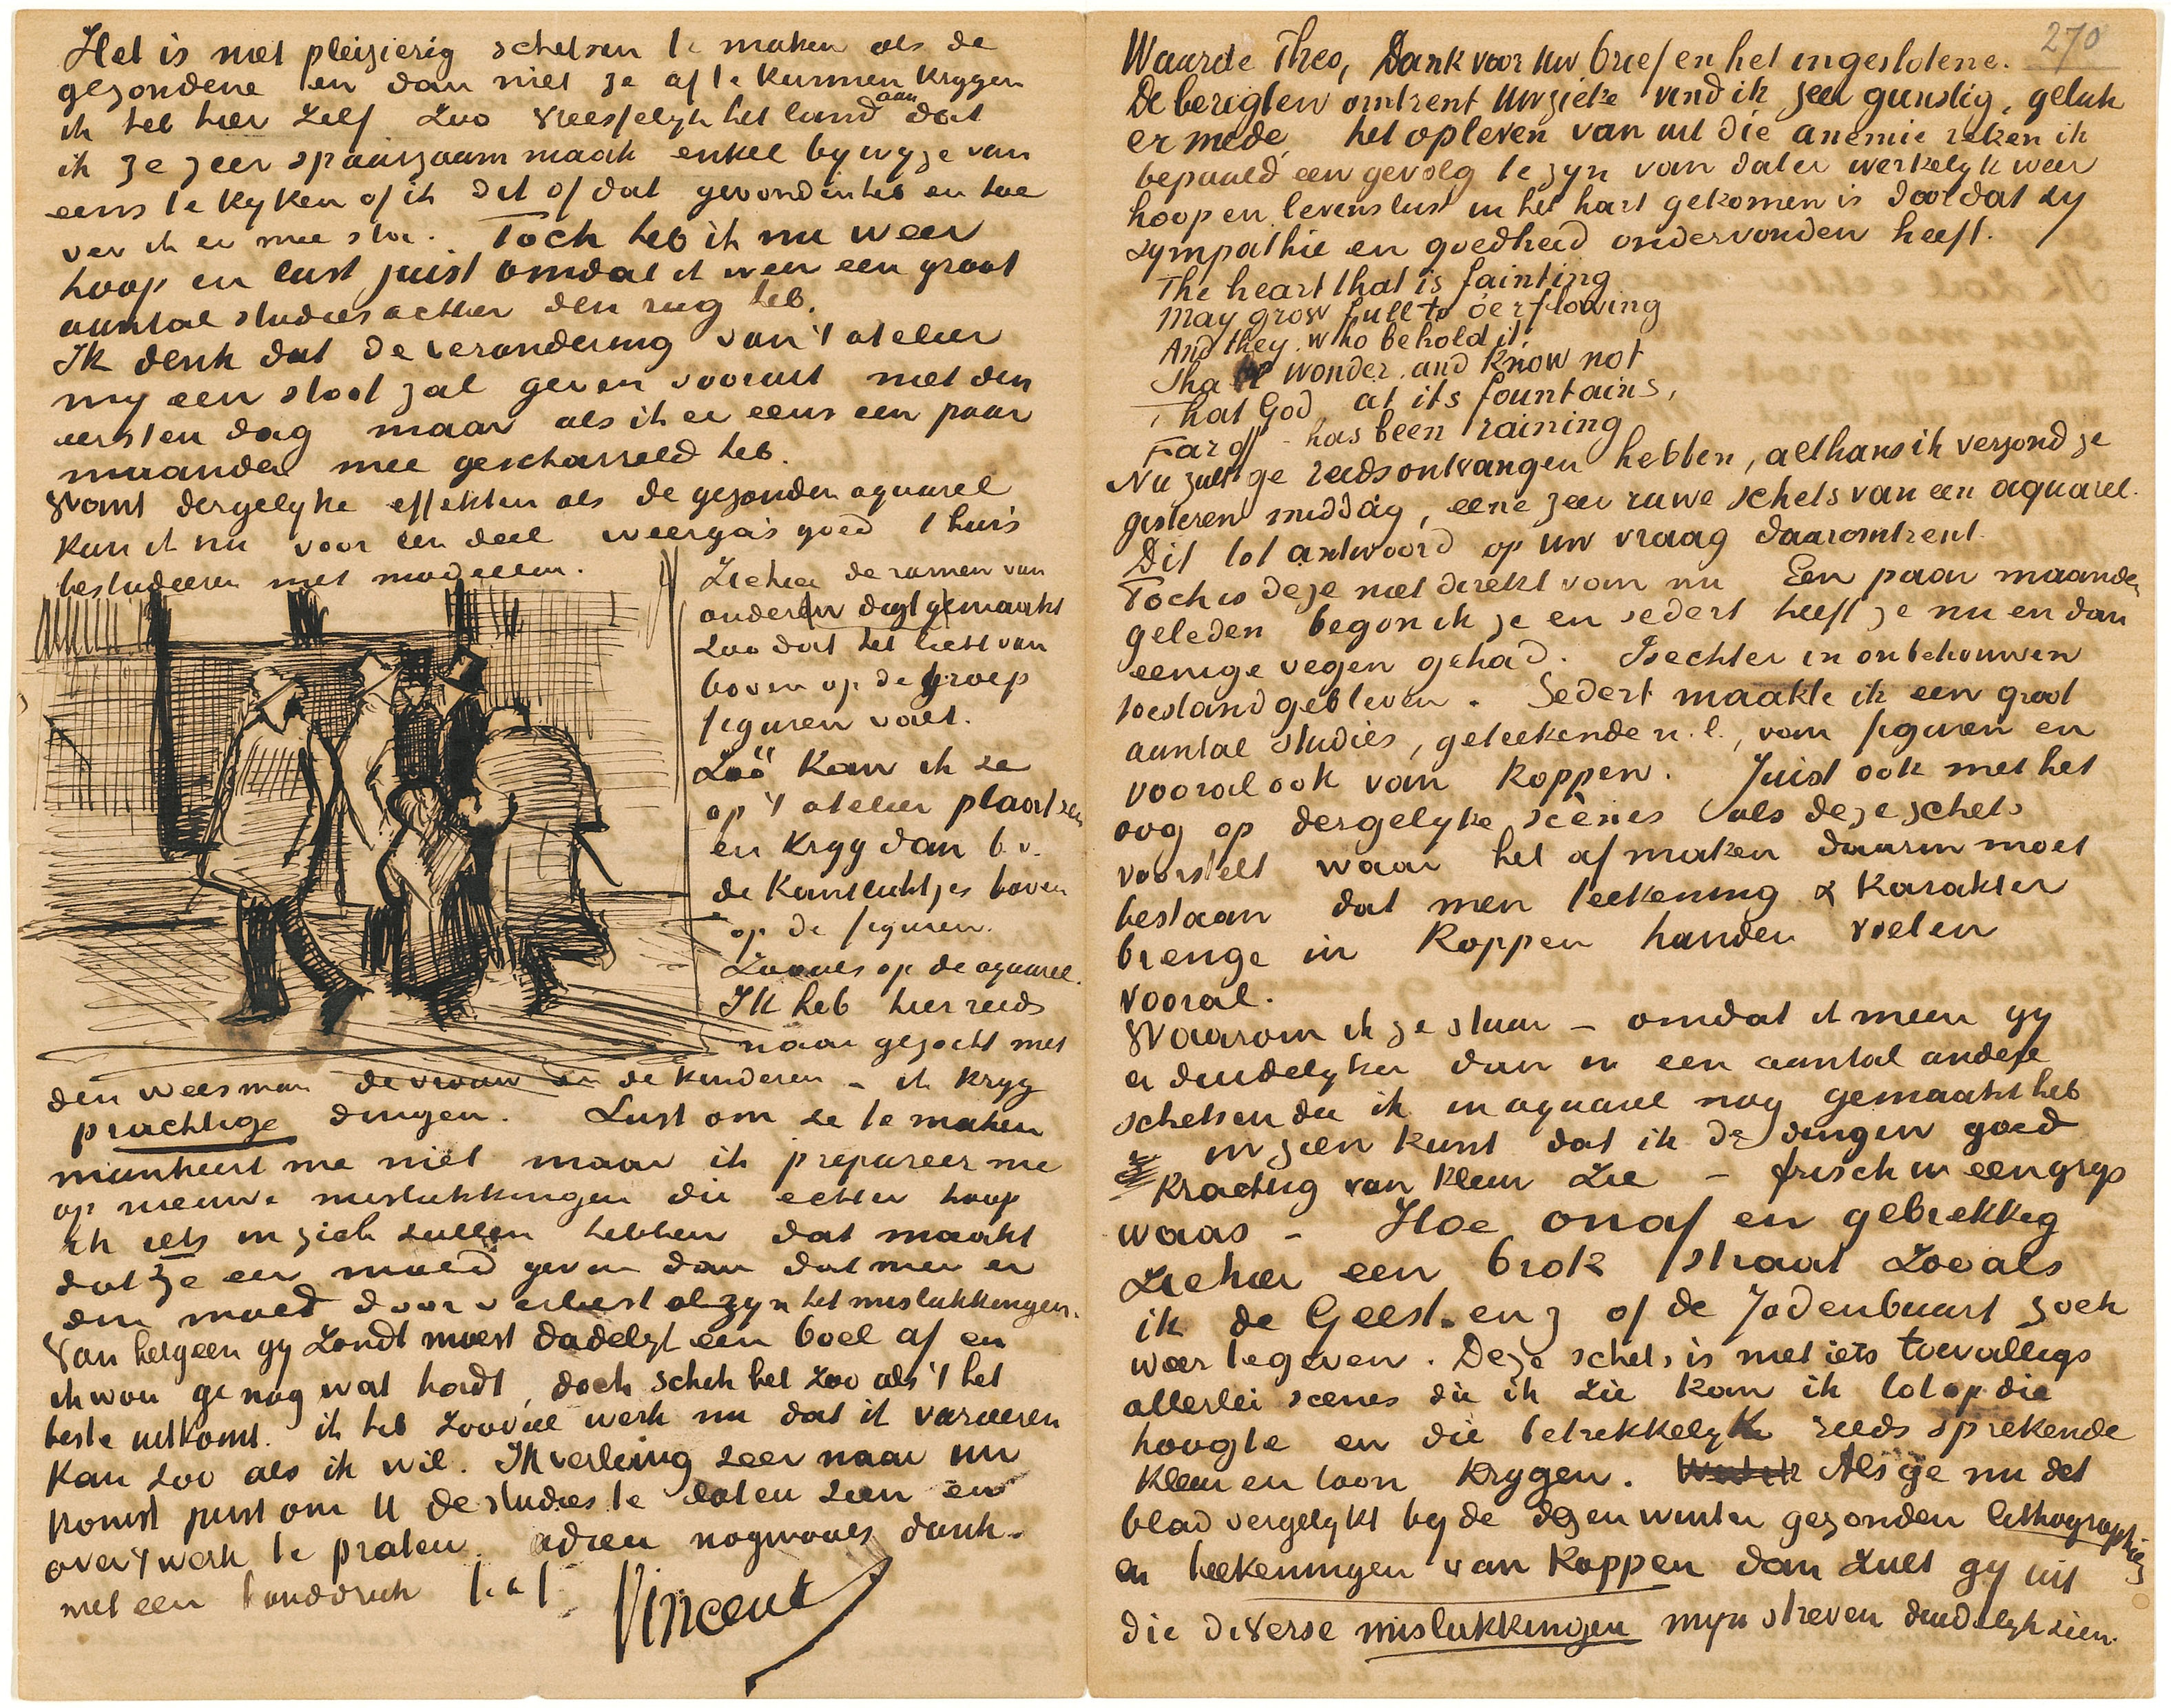 270
Waarde Theo, Dank voor Uw brief en het ingeslotene.
De berigten omtrent Uw zieke vind ik zeer gunstig, geluk
er mede, het opleven van uit die anemie reken ik
bepaald een gevolg te zyn van dat er werkelyk weer
hoop en levenslust in het hart gekomen is doordat zy
sympathie en goedheid ondervonden heeft.
The heart that is fainting
May grow full to o'erflowing
And they who behold it
Shall wonder and know not
That God, at its fountains,
Far off - has been raining
Nu zult ge reeds ontvangen hebben, althans ik verzond ze
gisteren middag, eene zeer ruwe schets van een aquarel.
Dit tot antwoord op uw vraag daaromtrent.
Toch is deze niet direkt van nu Een paar maanden
geleden begon ik ze en sedert heeft ze nu en dan
eenige vegen gehad. Is echter in onbehouwen
toestand gebleven. Sedert maakte ik een groot
aantal studies, geteekende n.l., van figuren en
vooral ook van koppen. Juist ook met het
oog op dergelyke scènes als deze schets
voorstelt waar het afmaken daarin moet
bestaan dat men teekening & karakter
brenge in koppen handen voeten
vooral.
Waarom ik ze stuur – omdat ik meen gy
er duidelyker dan in een aantal andere
schetsen die ik in aquarel nog gemaakt heb
in zien kunt dat ik de dingen goed
krachtig van kleur zie – frisch in een grys
waas – Hoe onaf en gebrekkig
Ziehier een brok straat zooals
ik de Geest enz of de Jodenbuurt zoek
weer te geven. Deze schets is niet iets toevalligs
allerlei scenes die ik zie kan ik tot op die
hoogte en die betrekkelyk reeds sprekende
kleur en toon krygen. Als ge nu dat
blad vergelykt by de dezen winter gezonden lithographies
en teekeningen van koppen dan zult gy uit
die diverse mislukkingen myn streven duidelyk zien.
Het is niet pleizierig schetsen te maken als de
gezondene en dan niet ze af te kunnen krygen
ik heb hier zelf zoo vreesselyk het land aan dat
ik ze zeer spaarzaam maak enkel by wyze van
eens te kyken of ik dit of dat gevonden heb en hoe
ver ik er mee sta. Toch heb ik nu weer
hoop en lust juist omdat ik weer een groot
aantal studies achter den rug heb.
Ik denk dat de verandering van 't atelier
my een stoot zal geven vooruit niet den
eersten dag maar als ik er eens een paar
maanden mee gescharreld heb.
Want dergelyke effekten als de gezonden aquarel
kan ik nu voor een deel weergaas goed thuis
bestudeeren met modellen.
Ziehier de ramen van
onderen digt gemaakt
zoo dat het licht van
boven op de groep
figuren valt.
Zóó kan ik ze
op 't atelier plaatsen
en kryg dan b.v.
de kantlichtjes boven
op de figuren.
Zooals op de aquarel.
Ik heb hier reeds
naar gezocht met
den weesman de vrouw en de kinderen – ik kryg
prachtige dingen. Lust om ze te maken
mankeert me niet maar ik prepareer me
op nieuwe mislukkingen die echter hoop
ik iets in zich zullen hebben dat maakt
dat ze eer moed geven dan dat men er
den moed door verliest al zyn het mislukkingen.
Van hetgeen gy zondt moest dadelyk een boel af en
ik wou ge nog wat hadt, doch schik het zoo als 't het
beste uitkomt. ik heb zooveel werk nu dat ik varieeren
kan zoo als ik wil. Ik verlang zeer naar uw
komst juist om U de studies te laten zien en
over 't werk te praten. adieu nogmaals dank.
met een handdruk t.à t.
Vincent